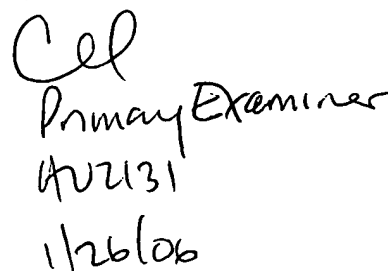 Primary Examiner
AU2131
1/26/06